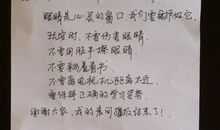 眼睛是心灵的窗口,我们要保护它。
玩耍时,不要伤害眼睛
不要用脏手揉眼睛
不要躺着看书
不要离电视机距离太近
要保持正确的学习姿势。
谢谢大家,我的晨间播报结束了!